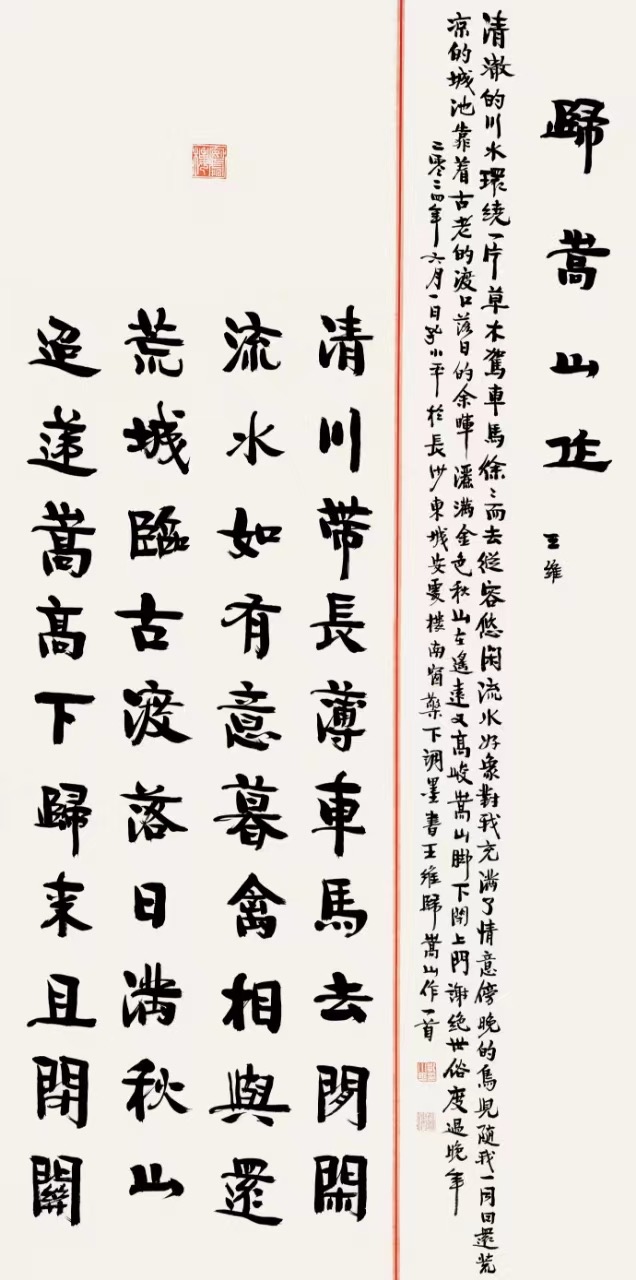 歸嵩山作
王維
清澈的川水環繞一片草木駕車馬徐々而去從容悠闲流水好象對我充滿了情意傍晚的鳥兒隨我一同回還荒
凉的城池靠着古老的渡口落日的余暉灑滿金色秋山在遙遠又高峻嵩山脚下閉上門謝绝世俗度過晚年
二零二四年六月一日 小平於長沙東城安 樓南窗 下調墨書王維歸嵩山作一首
清川帶長薄車馬去閑閑
流水如有意暮禽相與還
荒城臨古渡落日滿秋山
迢遞嵩高下歸来且閉關